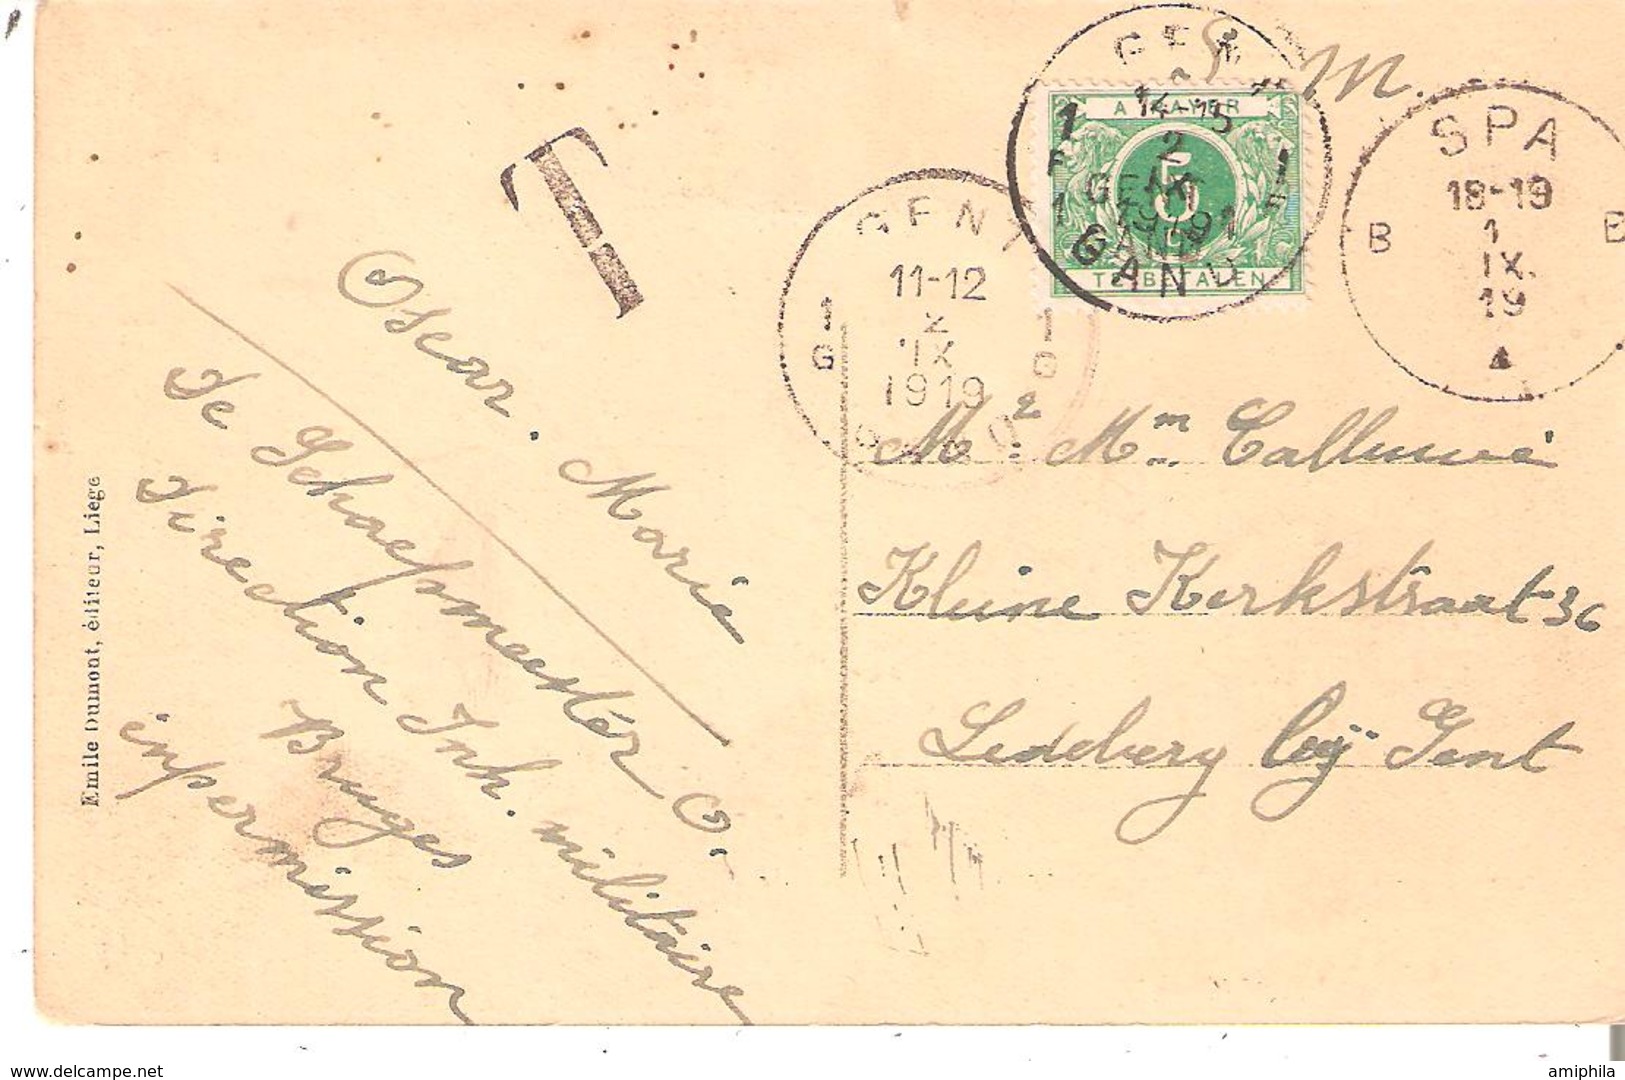 S. M.
A PAYER
5
TE BETALEN
GENT
14-15
2
IX
1919
GAND
SPA
18-19
1
IX
19
B B
GENT
11-12
2
IX
1919
1
G
1
G
T
Oscar. Marie
De Schaepmeester O.
Direction Inh. militaire
Bruges
inpermission
Mr. Mm
Kleine Kerkstraat 36
Ledeberg bij Gent
Emile Dumont, éditeur, Liege
www.delcampe.net
amiphila